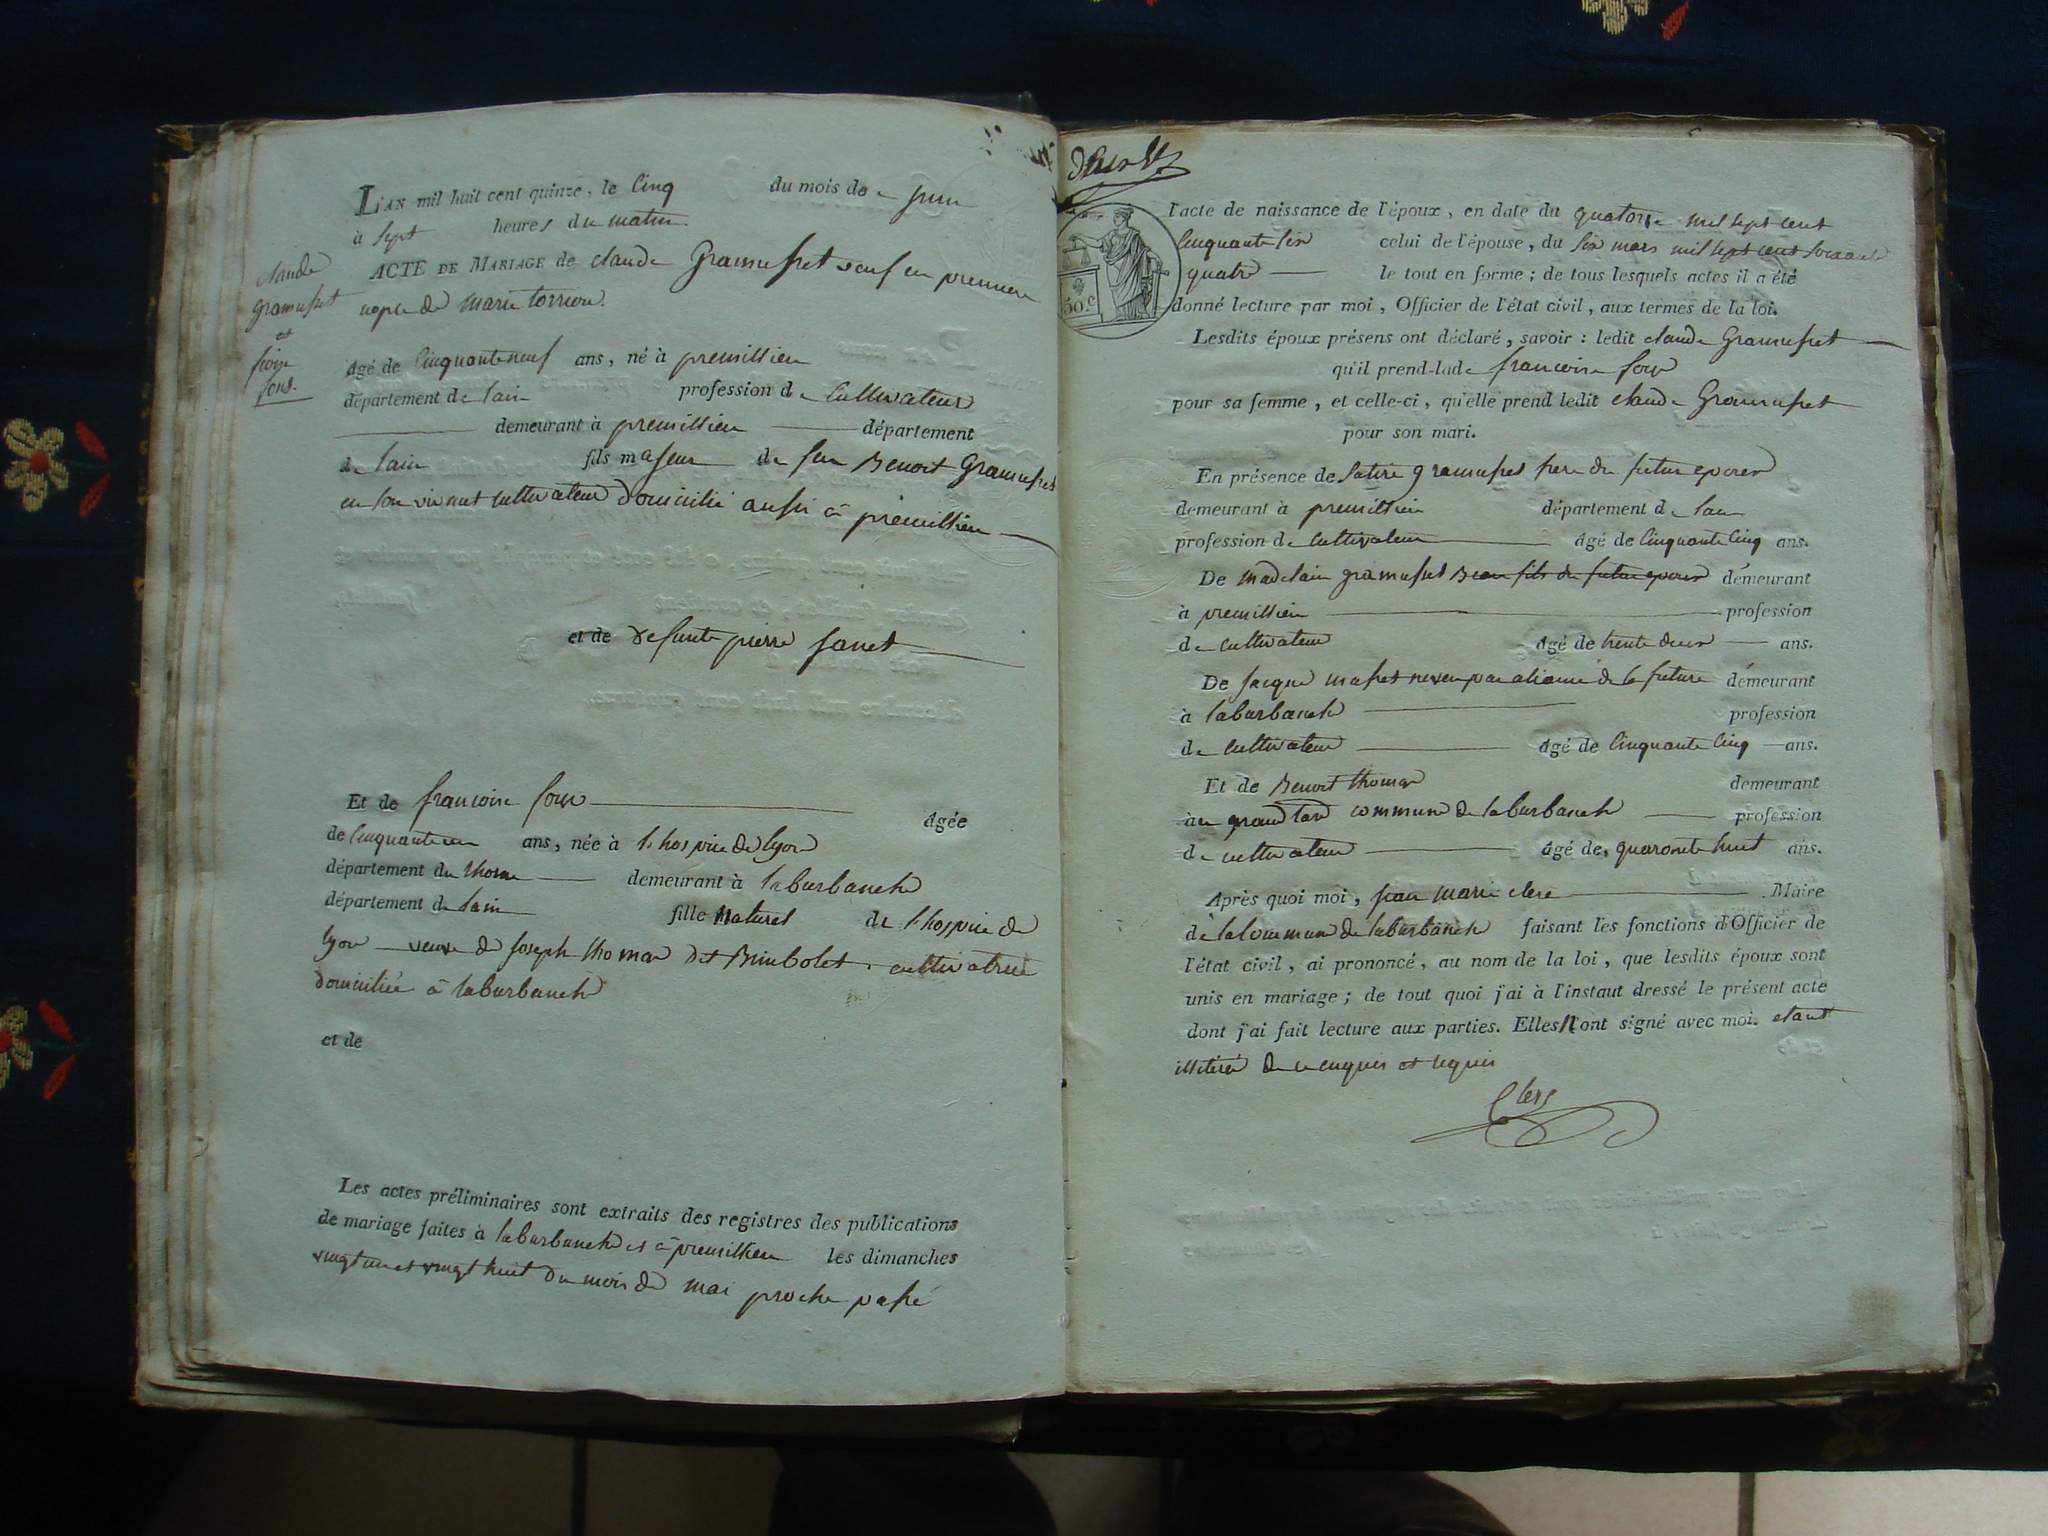 L'AN mil huit cent quinze, le Cinq du mois de juin
à sept heures du matin.
claude
gramusset
et
ACTE DE MARIAGE de claude Gramusset veuf en premiere
nopce de marie torrion.
agé de Cinquante neuf ans, né à premillieu
département de lain profession de Cultivateur
demeurant à premillieu département
de lain fils majeur de feu Benoit Gramusset
en son vivant cultivateur domicilié aussi à premillieu
et de defunte pierre janet
Et de francoise agée
de Cinquante un ans, née à lhospice de lyon
département du rhone demeurant à laburbanche
département de lain fille Naturel de lhospice de
lyon veuve de joseph thomas dit Brunbolet. cultivatrice
domiciliée à laburbanche
et de
Les actes préliminaires sont extraits des registres des publications
de mariage faites à laburbanche et à premillieu les dimanches
vingt un et vingt huit du mois de mai proche passé
l'acte de naissance de l'époux, en date du quatorze mil sept cent
Cinquante six celui de l'épouse, du six mars mil sept cent soixante
quatre le tout en forme; de tous lesquels actes il a été
50.c donné lecture par moi, Officier de l'état civil, aux termes de la loi.
Lesdits époux présens ont déclaré, savoir: ledit claude Gramusset
qu'il prend lade francoise
pour sa femme, et celle-ci, qu'elle prend ledit claude Gramusset
pour son mari.
En présence de gramusset frere du futur epoux
demeurant à premillieu département de lain
profession de cultivateur agé de Cinquante Cinq ans.
De madelain gramusset Beau fils du futur epoux demeurant
à premillieu profession
de cultivateur agé de trente deux ans.
De jacque musset neveu par aliance de la future demeurant
à laburbanche profession
de cultivateur agé de Cinquante Cinq ans.
Et de Benoit thomas demeurant
au commune de laburbanche profession
de cultivateur agé de quarante huit ans.
Après quoi moi, jean marie clerc Maire
de la Commune de laburbanche faisant les fonctions d'Officier de
l'état civil, ai prononcé, au nom de la loi, que lesdits époux sont
unis en mariage; de tout quoi j'ai à l'instant dressé le présent acte
dont j'ai fait lecture aux parties. Elles n'ont signé avec moi. etant
illiteré de ce enquis et requis
Clerc